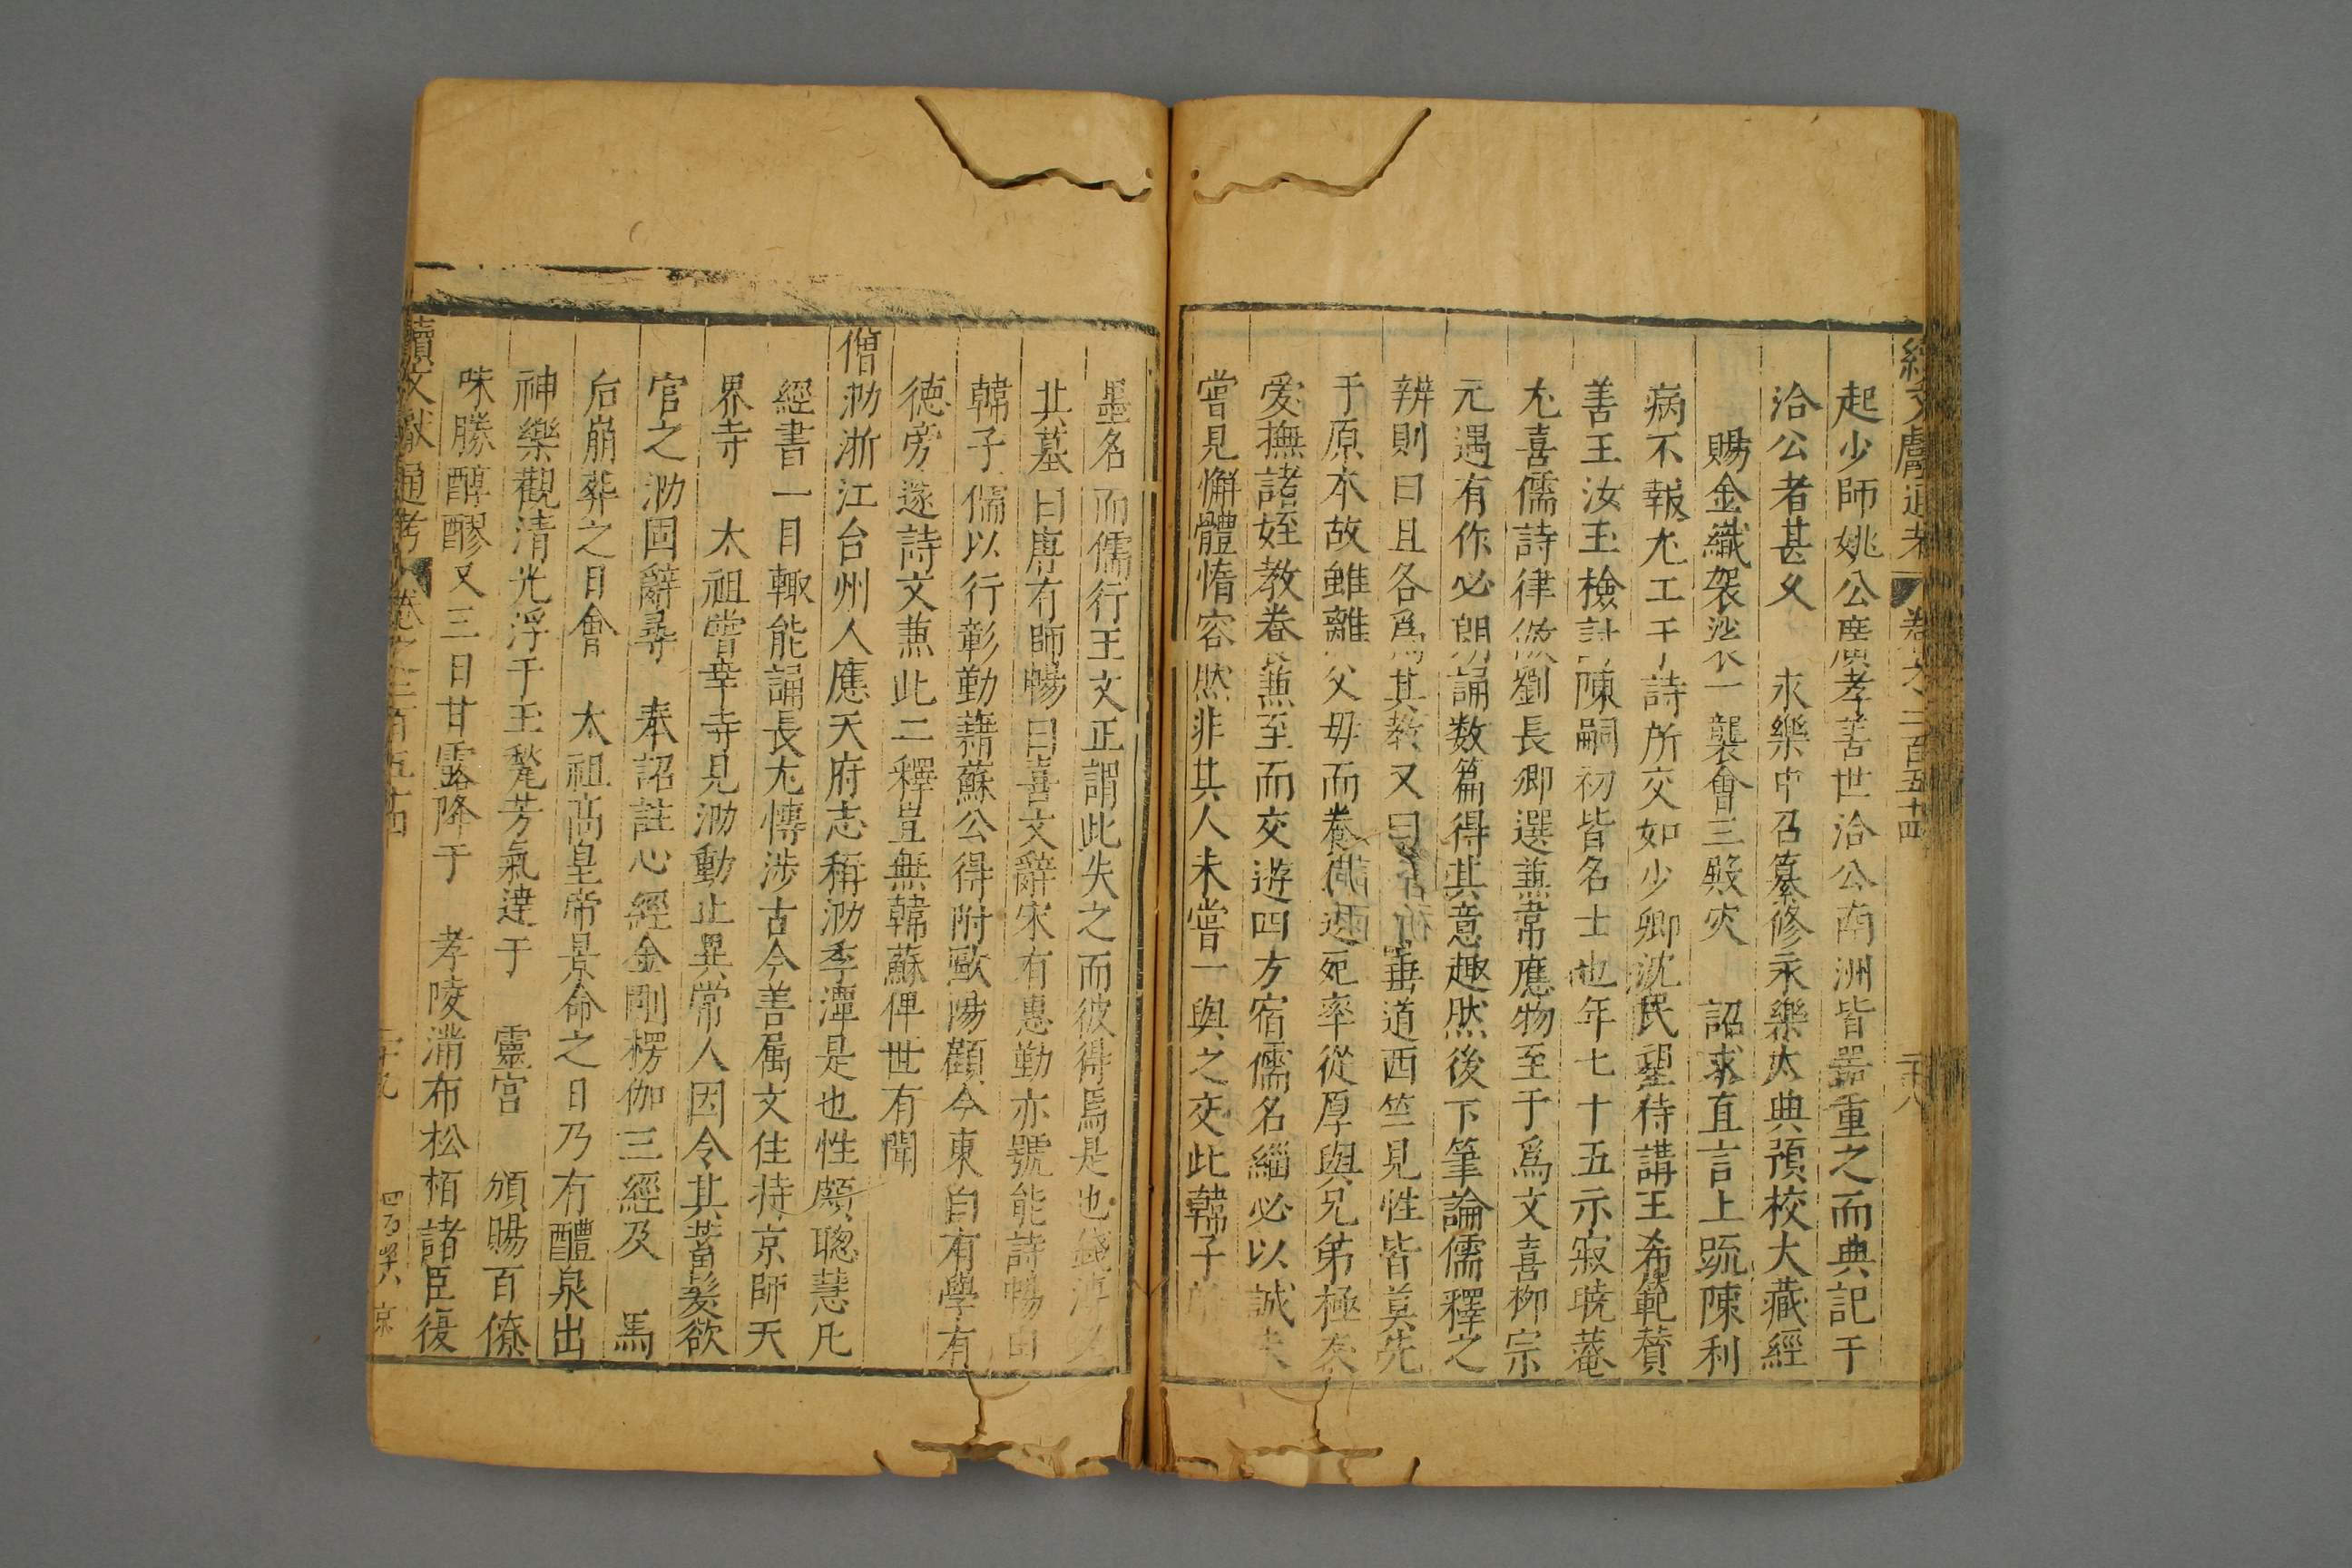 續文獻通考 卷之二百五十四 二十八
起少師姚公廣孝善世洽公南洲皆器重之而典記于
洽公者甚久 永樂中召纂修永樂大典預校大藏經
賜金織袈裟一襲會三殿灾 詔求直言上䟽陳利
病不報尤工于詩所交如少卿沈民望待講王希範賛
善王汝玉檢討陳嗣初皆名士也年七十五示寂暁菴
尤喜儒詩律倣劉長卿選兼常應物至于爲文喜栁宗
元遇有作必朗誦数篇得其意趣然後下筆論儒釋之
辨則曰且各爲其教又曰 垂道西竺見性皆莫先
于原本故雖離父母而養 迎 率從厚與兄弟極友
愛撫諸姪教養兼至而交遊四方宿儒名緇必以誠
嘗見懈體惰容然非其人未嘗一與之交此韓子
墨名而儒行王文正謂此失之而彼得焉是也
其墓曰唐有師暢曰喜文辭宋有惠勤亦號能詩暢由
韓子儒以行彰勤藉蘇公得附歐陽顧今東白有學有
德旁遂詩文蕪此二釋豈無韓蘇俾世有聞
僧泐浙江台州人應天府志稱泐季潭是也性頗聰慧凡
經書一目輙能誦長尤慱涉古今善属文住持京師天
界寺 太祖嘗幸寺見泐動止異常人因令其蓄髮欲
官之泐固辭尋 奉詔註心經金剛楞伽三經及 馬
后崩葬之日會 太祖高皇帝景命之日乃有醴泉出
神樂觀清光浮于玉甃芳氣達于 靈宫 頒賜百僚
味勝醇醪又三日甘露降于 孝陵滿布松栢諸臣復
續文獻通考 卷之二百五十四 二十九